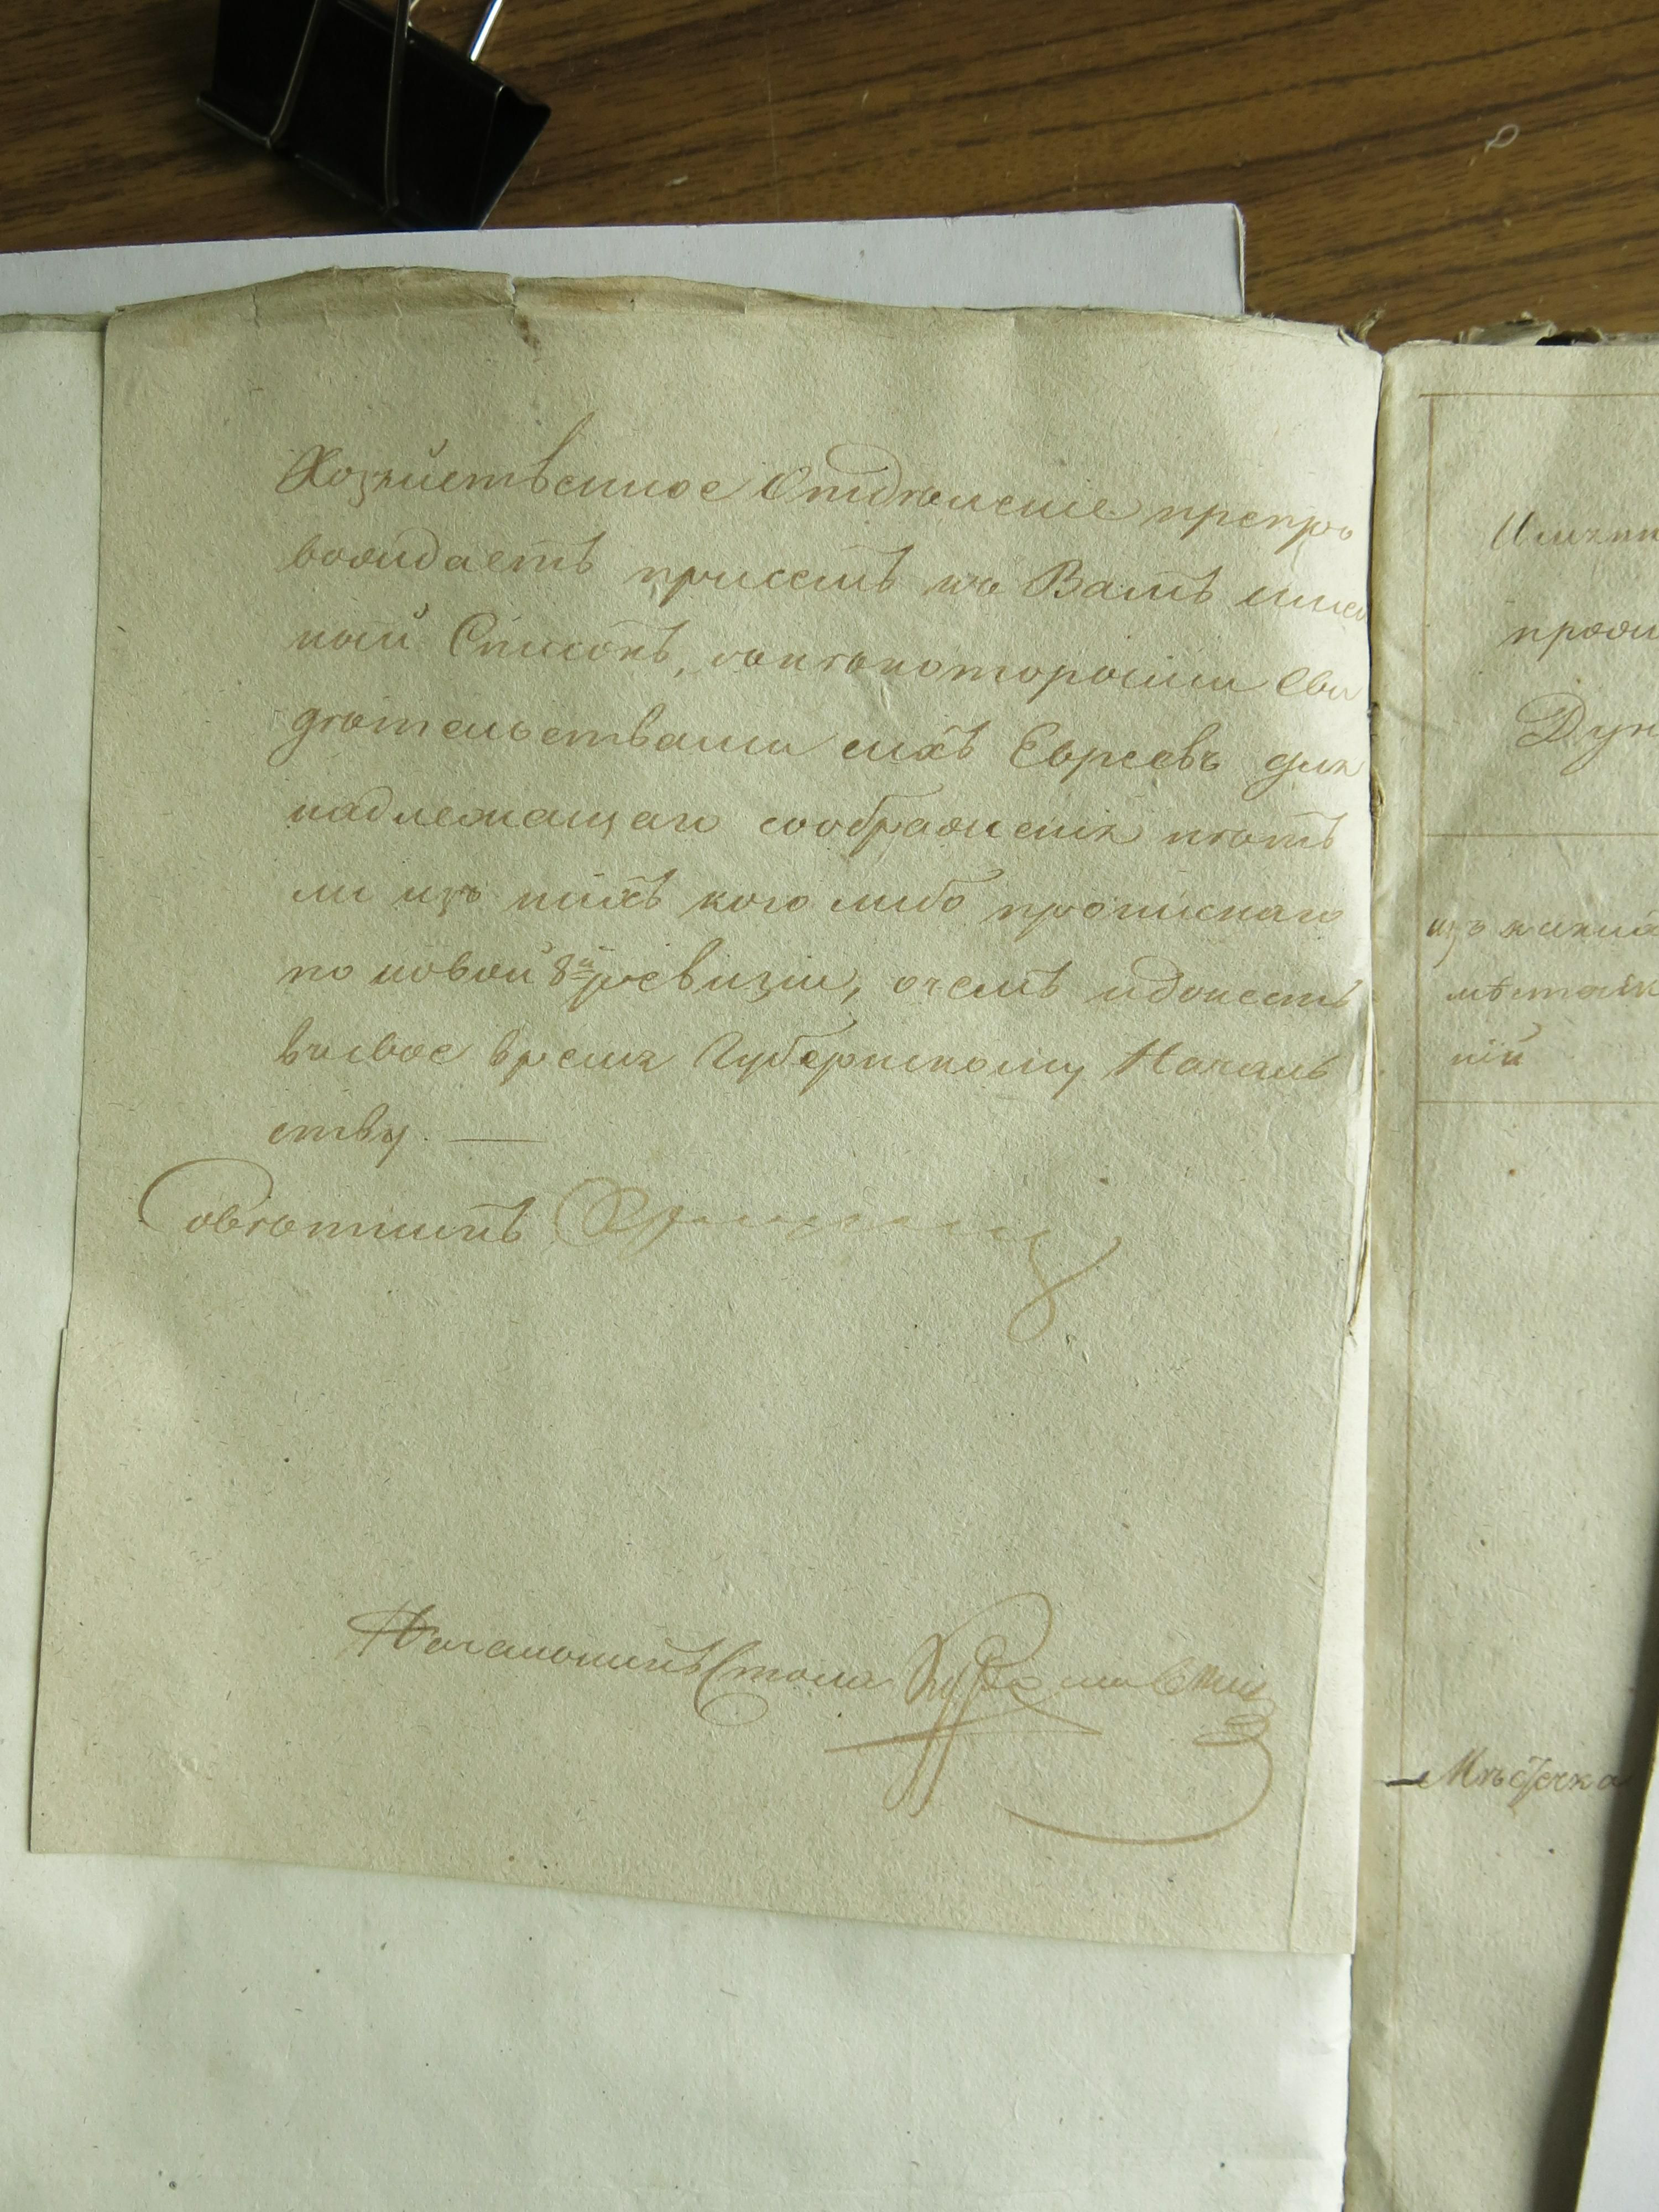 Хозяйственное Отдѣленіе препро
вождаетъ присемъ къ Вамъ имен
ный Списокъ, сънѣкоторыми Сви
дѣтельствами сихъ Евреевъ для
надлежащаго соображенія нѣтъ
ли изъ нихъ кого либо прописнаго
по новой 8й ревизіи, очемъ идонесть
въсвое время Губернскому Началь
ству. —
Совѣтникъ
Начальникъ Стола
Имянн
прожи
Дун
изъ какихъ
мѣст
ній
Мѣстечка